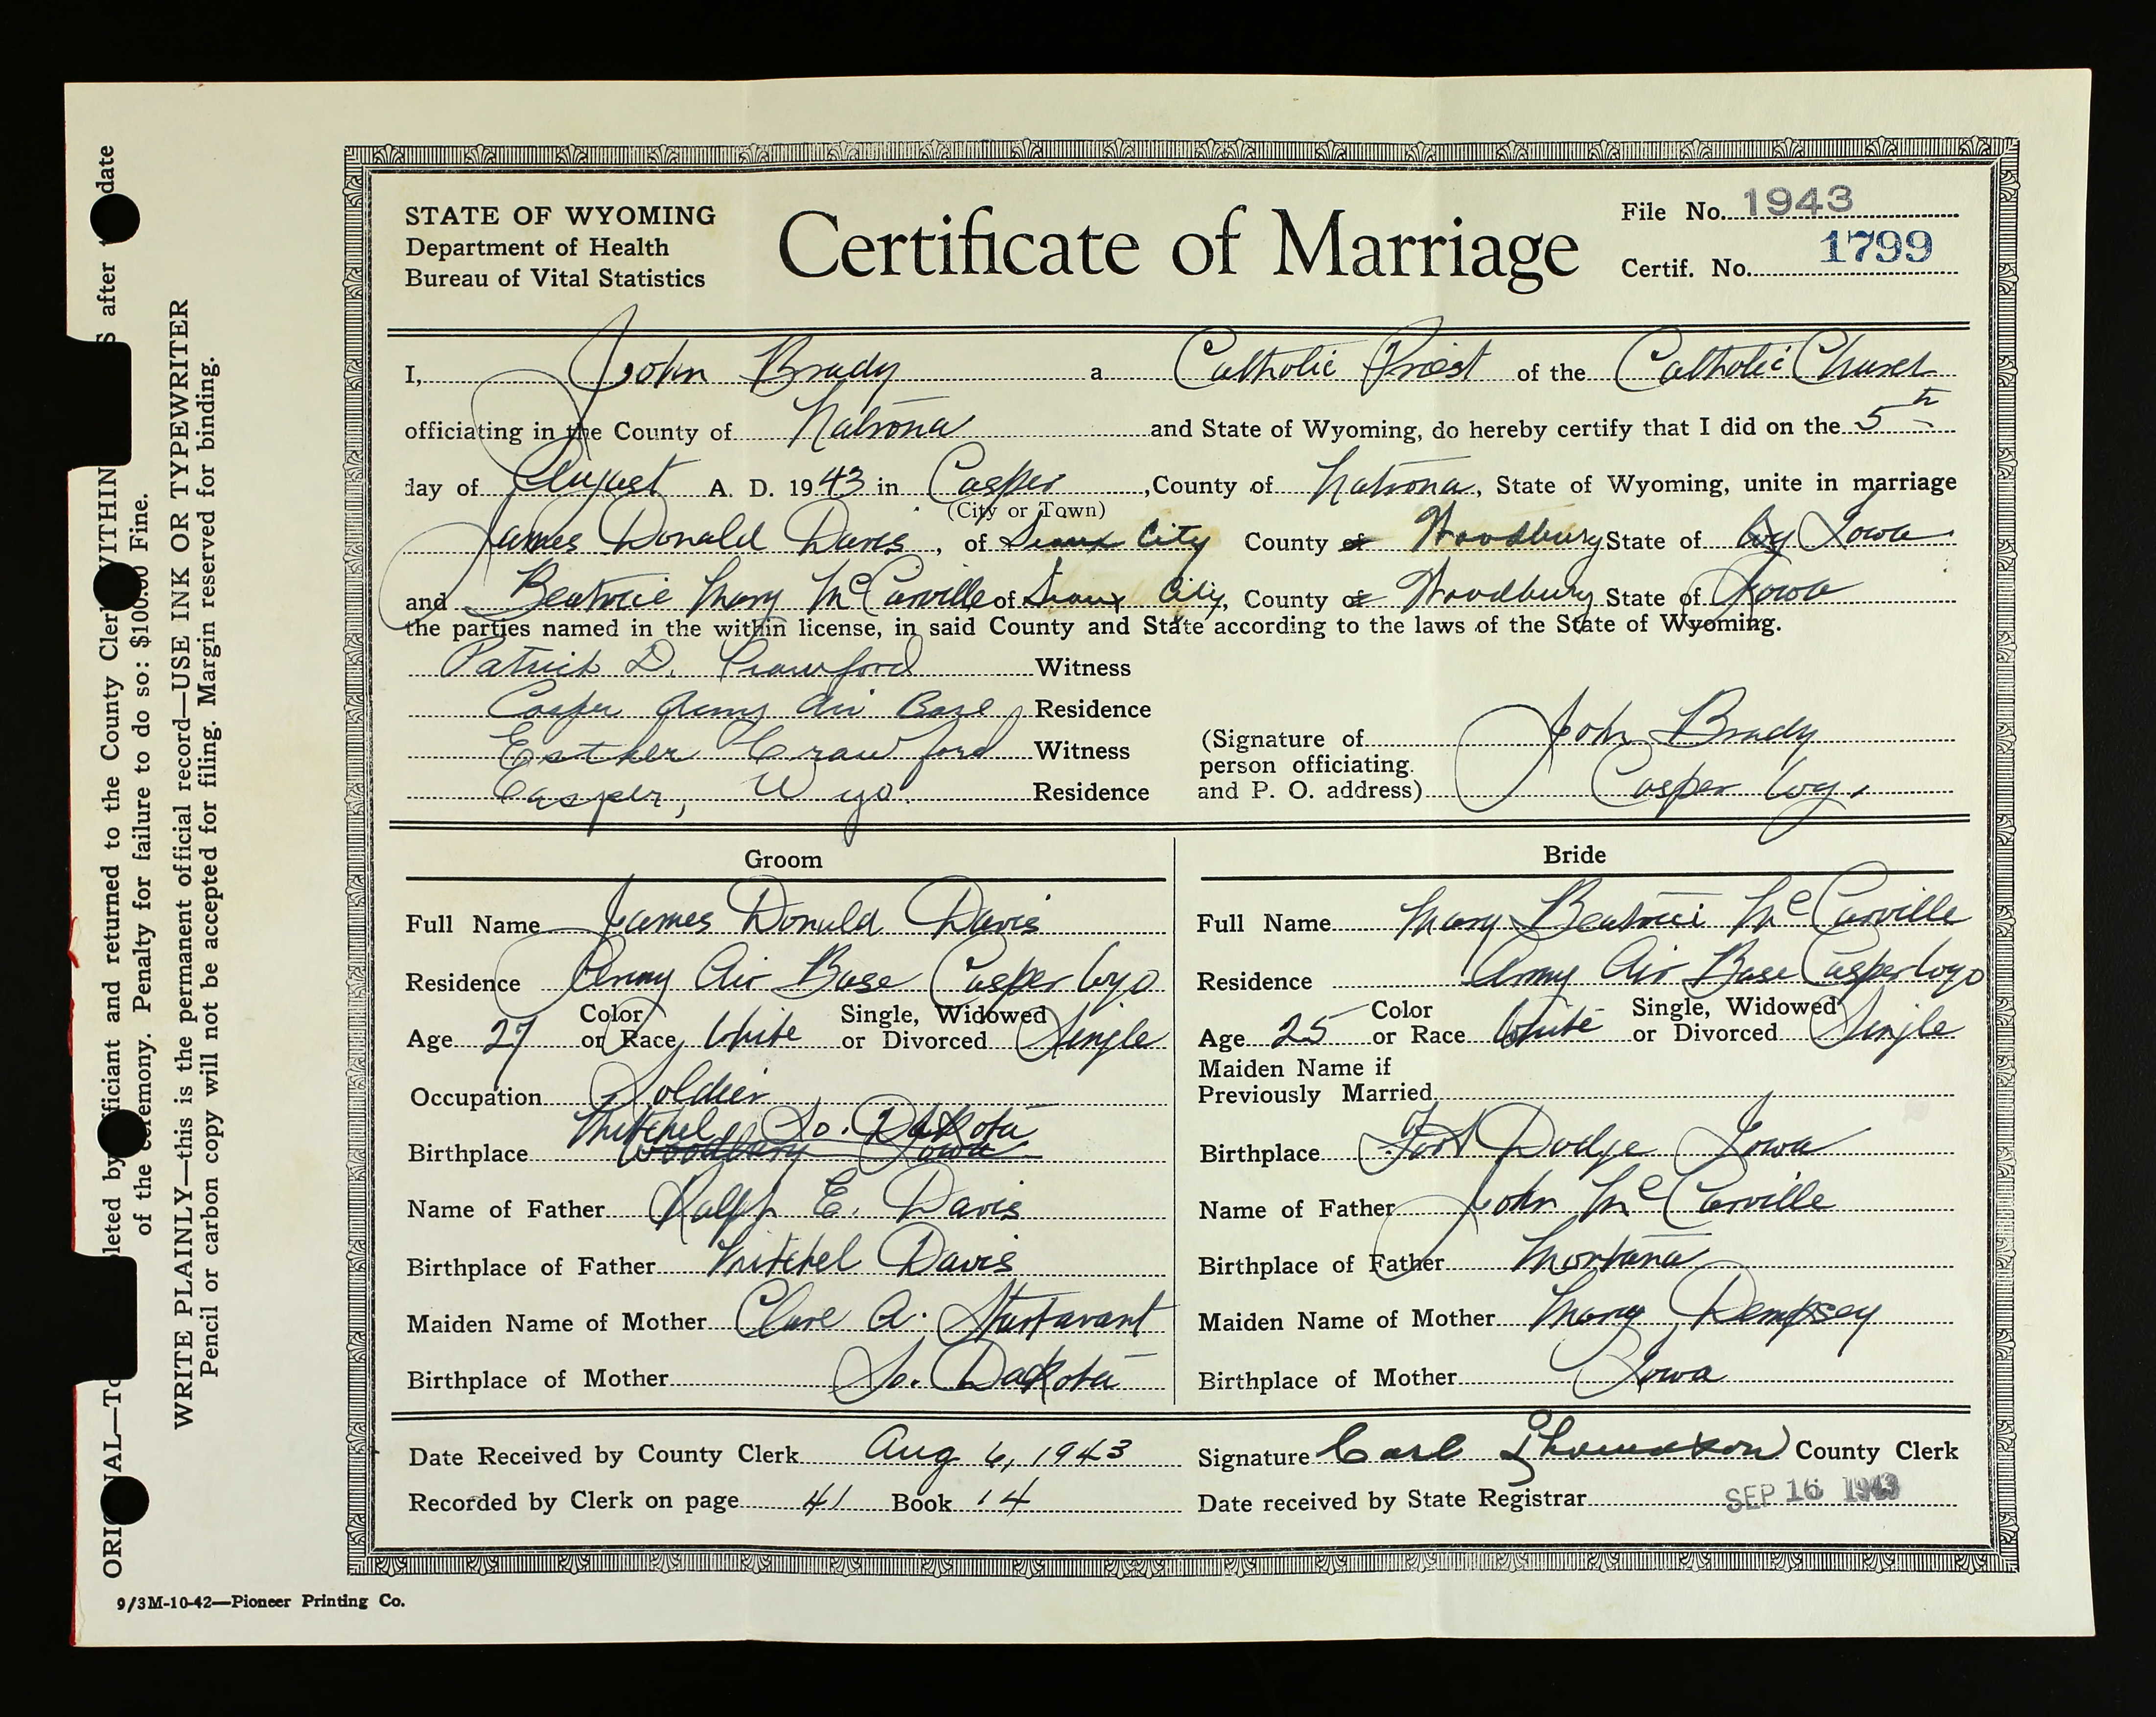 STATE OF WYOMING
Department of Health
Bureau of Vital Statistics
Certificate of Marriage
File No. 1943
Certif. No. 1799
I, John Brady a Catholic Priest of the Catholic Church
officiating in the County of Natrona and State of Wyoming, do hereby certify that I did on the 5th
day of August A. D. 1943 in Casper, County of Natrona, State of Wyoming, unite in marriage
(City or Town)
James Donald Davis, of Sioux City County of Woodbury State of Wy Iowa
and Beatrice Mary McCarville of Sioux City, County of Woodbury State of Iowa
the parties named in the within license, in said County and State according to the laws of the State of Wyoming.
Patrick D. Crawford Witness
Casper Army Air Base Residence
Esther Crawford Witness
Casper, Wyo. Residence
(Signature of John Brady
person officiating.
and P. O. address) Casper Wy.
Groom
Full Name James Donald Davis
Residence Army Air Base Casper Wyo
Age 27 Color or Race White Single, Widowed or Divorced Single
Occupation Soldier
Mitchel So. Dakota
Birthplace Woodbury Iowa
Name of Father Ralph E. Davis
Birthplace of Father Mitchel Davis
Maiden Name of Mother Clare A. Sturtavant
Birthplace of Mother So. Dakota
Bride
Full Name Mary Beatrice McCarville
Residence Army Air Base Casper Wyo
Age 25 Color or Race White Single, Widowed or Divorced Single
Maiden Name if
Previously Married
Birthplace Fort Dodge Iowa
Name of Father John McCarville
Birthplace of Father Montana
Maiden Name of Mother Mary Dempsey
Birthplace of Mother Iowa
Date Received by County Clerk Aug 6, 1943
Recorded by Clerk on page 41 Book 14
Signature Carl Thomasson County Clerk
Date received by State Registrar SEP 16 1943
9/3M-10-42—Pioneer Printing Co.
ORIGINAL—To pleted by officiant and returned to the County Clerk WITHIN S after date
of the ceremony. Penalty for failure to do so: $100.00 Fine.
WRITE PLAINLY—this is the permanent official record—USE INK OR TYPEWRITER
Pencil or carbon copy will not be accepted for filing. Margin reserved for binding.